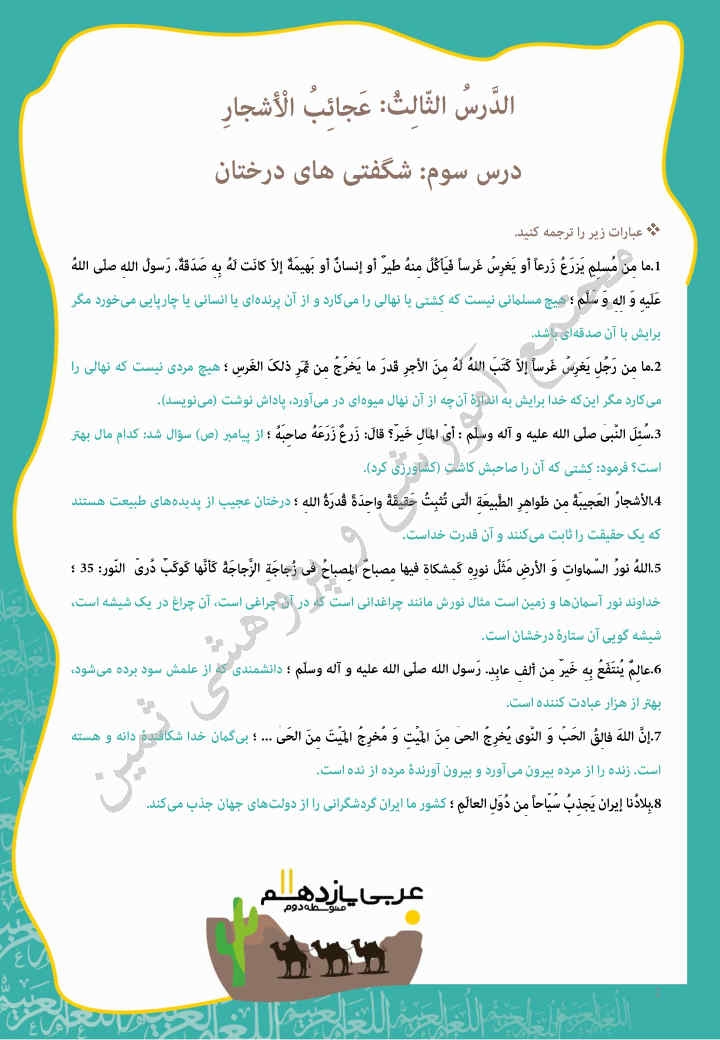 الدَّرسُ الثّالِثُ: عَجائِبُ الْأَشجارِ
درس سوم: شگفتی های درختان
❖ عبارات زیر را ترجمه کنید.
1.ما مِن مُسلِمٍ یَزرَعُ زَرعاً أو یَغرِسُ غَرساً فَیَأکُلُ مِنهُ طَیرٌ أو إنسانٌ أو بَهیمَةٌ إلّا کانَت لَهُ بِهِ صَدَقَةٌ. رَسولُ اللهِ صلّی اللهُ
عَلَیهِ وَ الِهِ وَ سَلَّم ؛ هیچ مسلمانی نیست که کِشتی یا نهالی را می‌کارد و از آن پرنده‌ای یا انسانی یا چارپایی می‌خورد مگر
برایش با آن صدقه‌ای باشد.
2.ما مِن رَجُلٍ یَغرِسُ غَرساً إلّا کَتَبَ اللهُ لَهُ مِنَ الأجرِ قَدرَ ما یَخرُجُ مِن ثَمَرِ ذلکَ الغَرسِ ؛ هیچ مردی نیست که نهالی را
می‌کارد مگر این‌که خدا برایش به اندازۀ آن‌چه از آن نهال میوه‌ای در می‌آورد، پاداش نوشت (می‌نویسد).
3.سُئِلَ النَّبیّ صلّی الله علیه و آله وسلّم : أیّ المالِ خَیرٌ؟ قالَ: زَرعٌ زَرَعَهُ صاحِبَهُ ؛ از پیامبر (ص) سؤال شد: کدام مال بهتر
است؟ فرمود: کِشتی که آن را صاحبش کاشت (کشاورزی کرد).
4.الأشجارُ العَجیبَةُ مِن ظواهِرِ الطَّبیعَةِ الَّتی تُثبِتُ حَقیقَةً واحِدَةً قُدرَةُ اللهِ ؛ درختان عجیب از پدیده‌های طبیعت هستند
که یک حقیقت را ثابت می‌کنند و آن قدرت خداست.
5.اللهُ نورُ السّماواتِ وَ الأرضِ مَثَلُ نورِهِ کَمِشکاةٍ فیها مِصباحٌ المِصباحُ فی زُجاجَةٍ الزُّجاجَةُ کَأنَّها کَوکَبٌ دُریّ النّور: 35 ؛
خداوند نور آسمان‌ها و زمین است مثال نورش مانند چراغدانی است که در آن چراغی است، آن چراغ در یک شیشه است،
شیشه گویی آن ستارۀ درخشان است.
6.عالِمٌ یُنتَفَعُ بِهِ خَیرٌ مِن ألفِ عابِدٍ. رَسول الله صلّی الله علیه و آله وسلّم ؛ دانشمندی که از علمش سود برده می‌شود،
بهتر از هزار عبادت کننده است.
7.إنَّ اللهَ فالِقُ الحَبّ وَ النَّوی یُخرِجُ الحیّ مِنَ المَیّتِ وَ مُخرِجُ المَیّتَ مِنَ الحَیّ ... ؛ بی‌گمان خدا شکافندۀ دانه و هسته
است. زنده را از مرده بیرون می‌آورد و بیرون آورندۀ مرده از نده است.
8.بِلادُنا إیران یَجذِبُ سُیّاحاً مِن دُوَلِ العالَمِ ؛ کشور ما ایران گردشگرانی را از دولت‌های جهان جذب می‌کند.
مجتمع آموزشی و پژوهشی ثمین
عربی یازدهم
متوسطه دوم